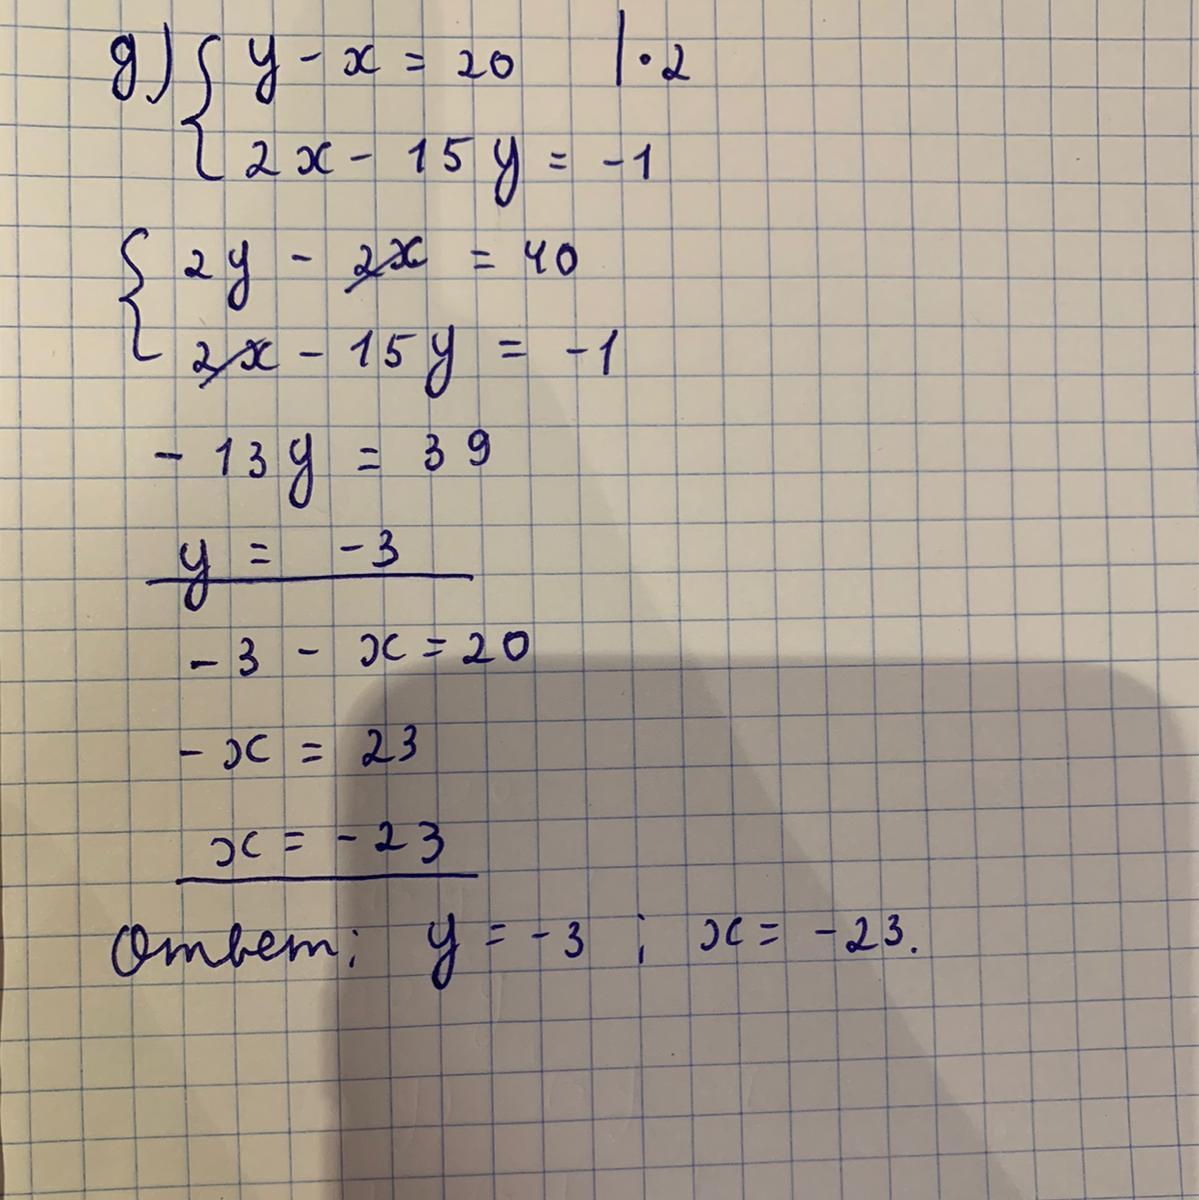 д) { y - x = 20 | · 2
2x - 15y = -1
{ 2y - 2x = 40
2x - 15y = -1
- 13y = 39
y = -3
-3 - x = 20
-x = 23
x = -23
Ответ: y = -3 ; x = -23.